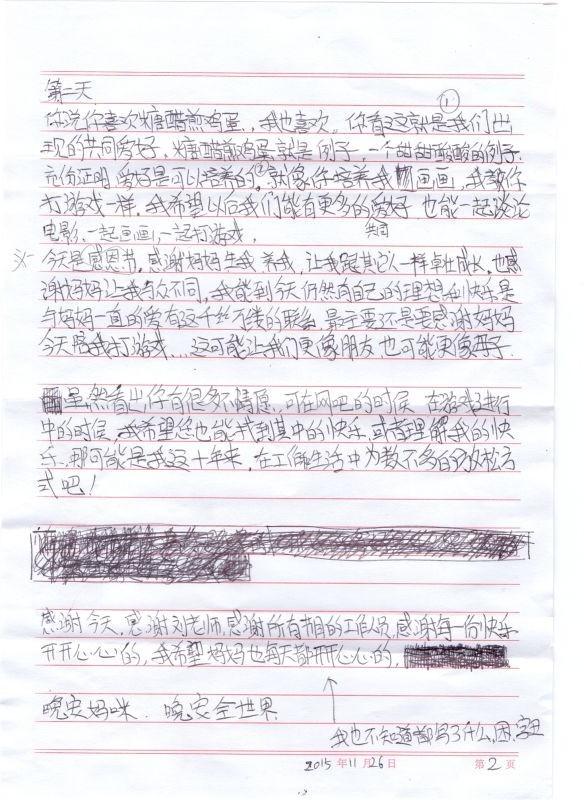 第二天
①
你说你喜欢糖醋煎鸡蛋，我也喜欢。你看这就是我们出
现的共同爱好，糖醋煎鸡蛋就是例子，一个甜甜酸酸的例子。
充份证明爱好是可以培养的②，就像你培养我画画，我教你
打游戏一样。我希望以后我们能有更多的爱好 也能一起谈论
共同
电影、一起画画、一起打游戏，
今天是感恩节，感谢妈妈生我养我，让我跟其它人一样茁壮成长，也感
谢妈妈让我与众不同，我能到今天仍然有自己的理想和快乐是
与妈妈一直的爱有这千丝万缕的联系，最主要还是要感谢妈妈
今天陪我打游戏...这可能让我们更像朋友也可能更像母子.
虽然看出你有很多不情愿，可在网吧的时候 在游戏进行
中的时候，我希望您也能找到其中的快乐，或者理解我的快
乐，那可能是我这十年来，在工作生活中为数不多的放松方
式吧！
感谢今天，感谢刘老师，感谢所有节目的工作人员，感谢每一份快乐
开开心心的，我希望妈妈也每天都开开心心的，
晚安妈咪、晚安全世界
我也不知道都写了什么，困，字丑
2015年11月26日 第2页